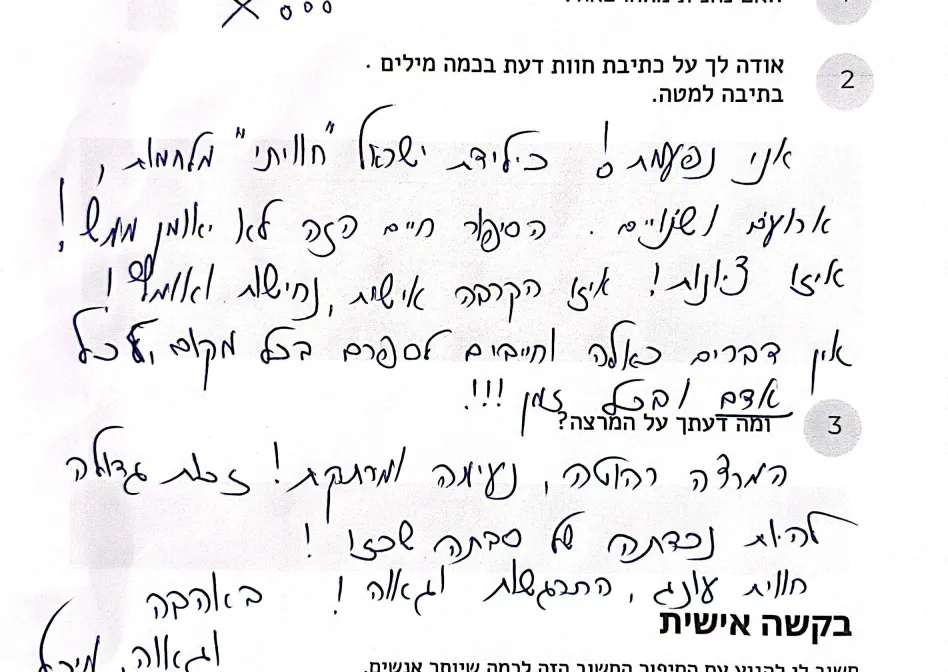 2
אודה לך על כתיבת חוות דעת בכמה מילים .
בתיבה למטה.
אני נפעמת! כילידת ישראל "חוויתי" מלחמות,
ארועים ושינויים. הסיפור חיים הזה לא יאומן ממש!
איזו ציונות! איזו הקרבה אישית, נחישות ואומץ!
אין דברים כאלה וחייבים לספרם בכל מקום, לכל
אדם ובכל זמן!!!
3
ומה דעתך על המרצה?
המרצה רהוטה, נעימה ומרתקת! זכות גדולה
להיות נכדתה של סבתה שכזו!
חווית עונג, התרגשות וגאווה! באהבה
וגאווה, מיכל
בקשה אישית